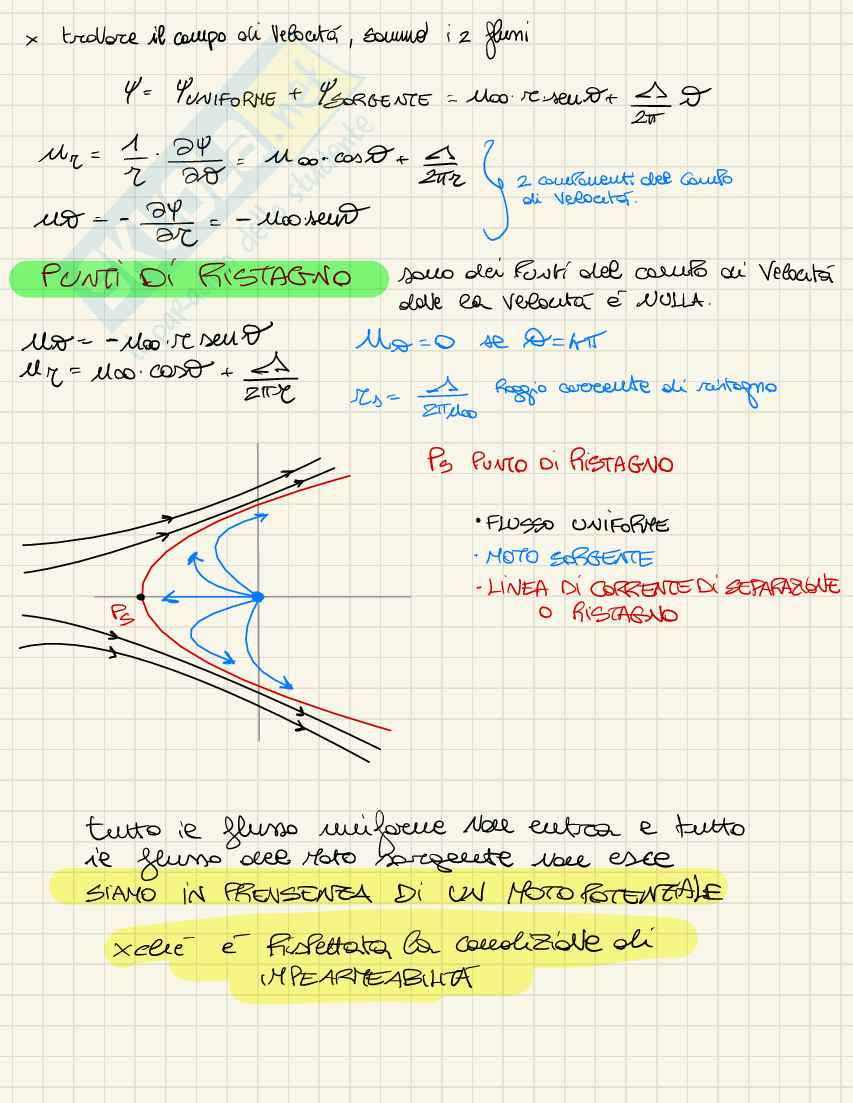 x trovare il campo di velocità, sommo i 2 flussi
ψ = ψUNIFORME + ψSORGENTE = u∞·r·senθ + Λ/2π θ
ur = 1/r · ∂ψ/∂θ = u∞·cosθ + Λ/2πr
uθ = - ∂ψ/∂r = - u∞·senθ
2 componenti del campo
di velocità.
PUNTI DI RISTAGNO
sono dei punti del campo di velocità
dove la velocità è NULLA.
uθ = - u∞·r senθ
ur = u∞·cosθ + Λ/2πr
uθ = 0 se θ = kπ
rs = Λ/2πu∞ Raggio corrente di ristagno
Ps PUNTO DI RISTAGNO
• FLUSSO UNIFORME
· MOTO SORGENTE
· LINEA DI CORRENTE DI SEPARAZIONE
O RISTAGNO
Ps
tutto il flusso uniforme non entra e tutto
il flusso del moto sorgente non esce
SIAMO IN PRENSENZA DI UN MOTO POTENZIALE
xché è rispettata la condizione di
IMPEARMEABILITÀ
SKUOLA.net